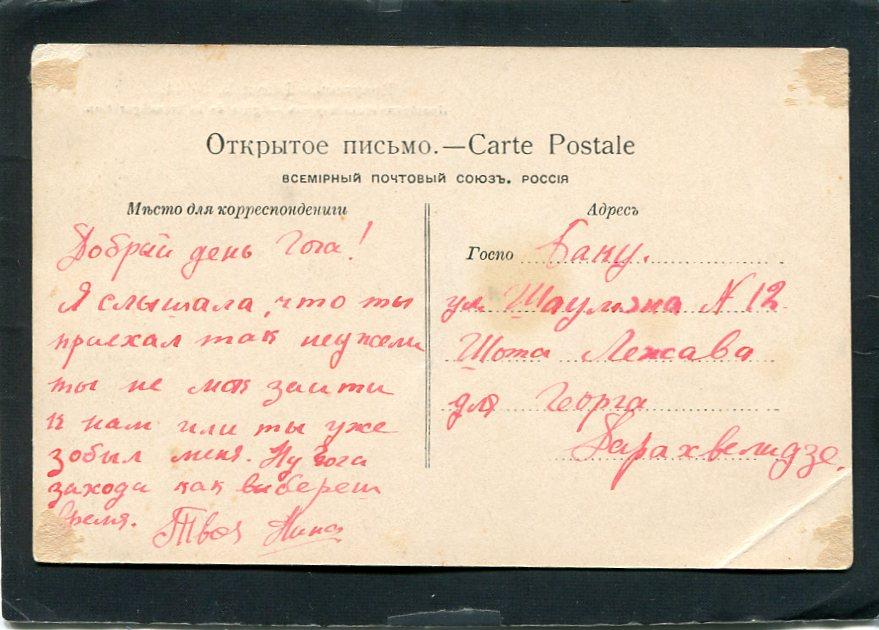 Открытое письмо.—Carte Postale
ВСЕМІРНЫЙ ПОЧТОВЫЙ СОЮЗЪ. РОССІЯ
Мѣсто для корреспонденціи
Добрый день Гога!
Я слышала, что ты
приехал так неужели
ты не мог зайти
к нам или ты уже
зобыл меня. Ну Гога
заходи как выбереш
время. Твоя Нина
Адресъ
Госпо Баку.
ул. Шаумяна N 12
Шота Лежава
для Георга
Дарахвелидзе.